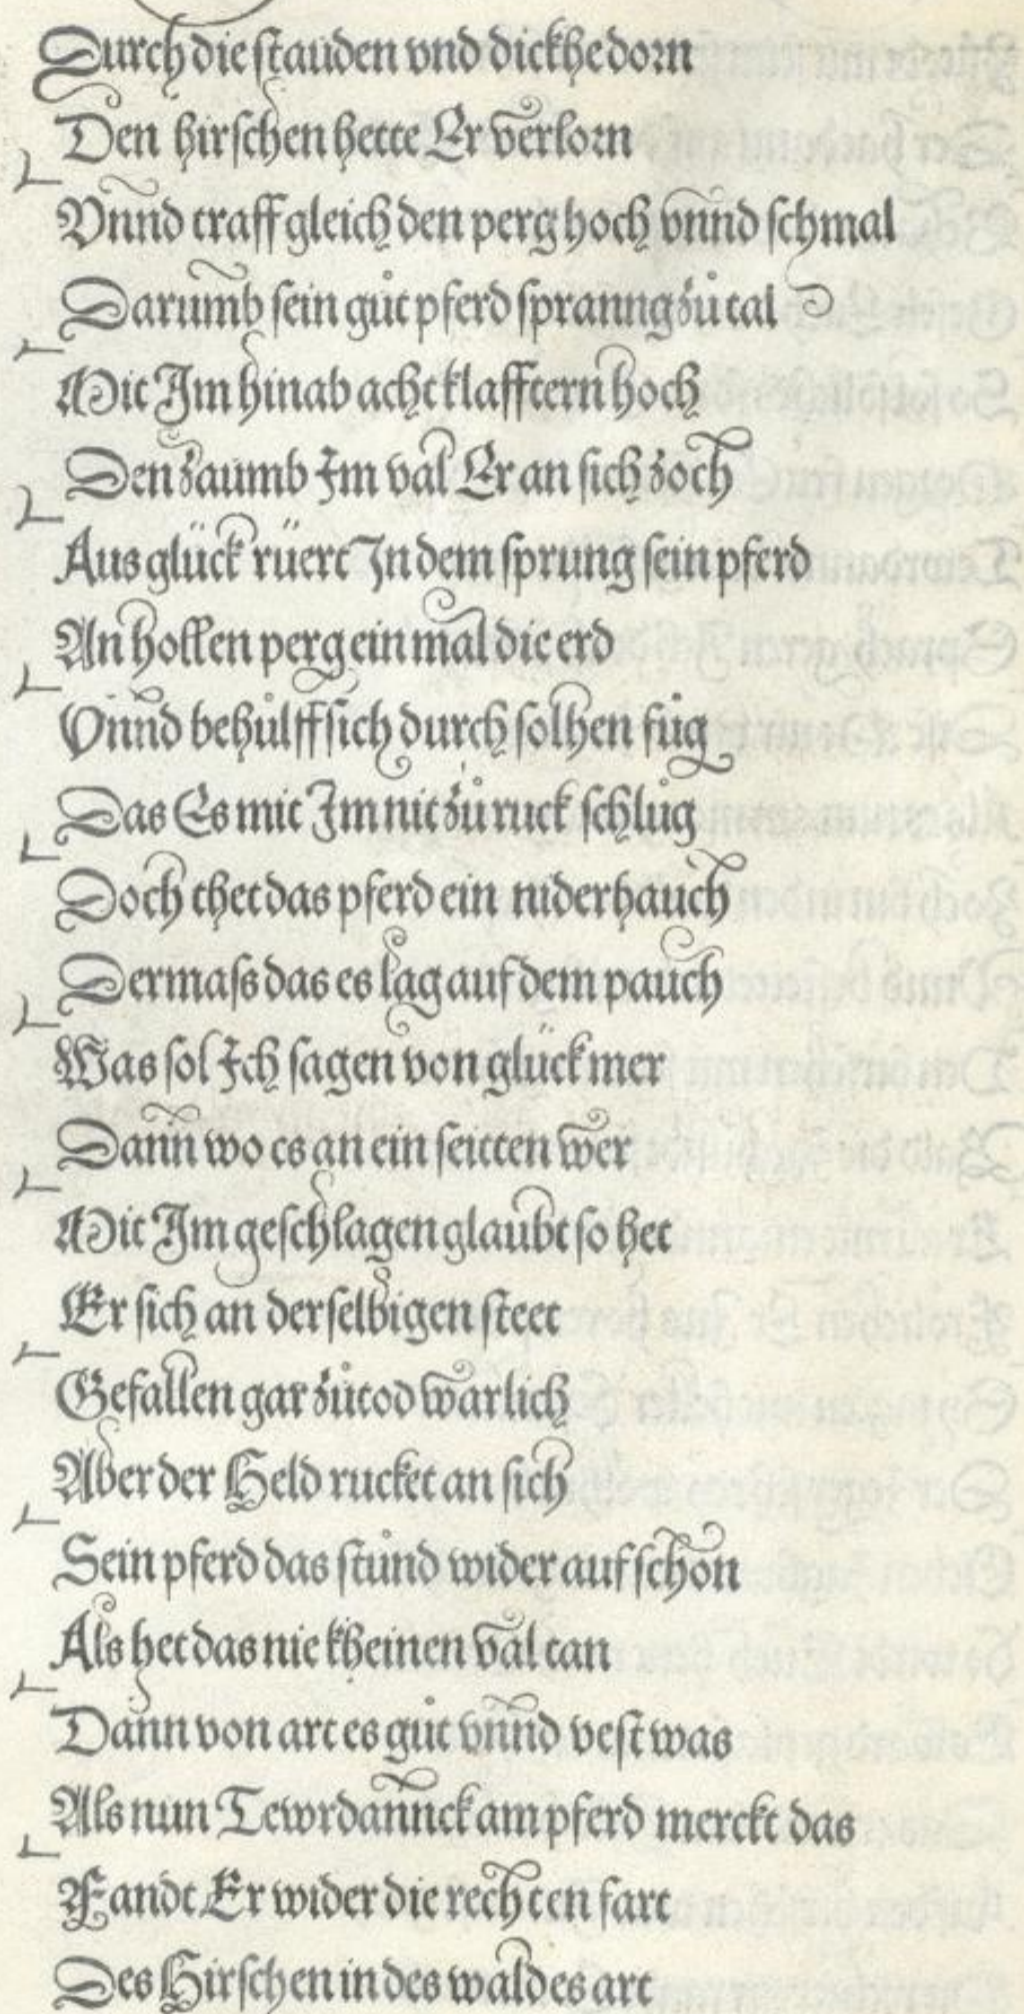 Durch die stauden vnd dickhe dorn
Den hirschen hette Er verlorn
Vnnd traff gleich den perg hoch vnnd schmal
Darumb sein gůt pferd spranng zů tal
Mit Im hinab acht klafftern hoch
Den zaumb Im val Er an sich zoch
Aus glück rüert In dem sprung sein pferd
An holen perg ein mal die erd
Vnnd behůlff sich durch solhen fůg
Das Es mit Im nit zů ruck schlůg
Doch thet das pferd ein niderhauch
Dermass das es lag auf dem pauch
Was sol Ich sagen von glück mer
Dann wo es an ein seitten wer
Mit Im geschlagen glaubt so het
Er sich an derselbigen stett
Gefallen gar zů tod warlich
Aber der Held rucket an sich
Sein pferd das stůnd wider auf schon
Als het das nie kheinen val tan
Dann von art es gůt vnnd vest was
Als nun Tewrdannck am pferd merckt das
Fandt Er wider die rechten fart
Des Hirschen in des waldes art